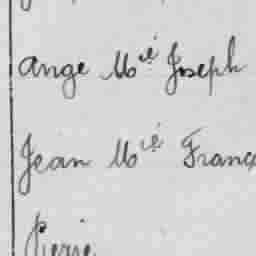 ange Mie Joseph
Jean Mie Franç
Pierre